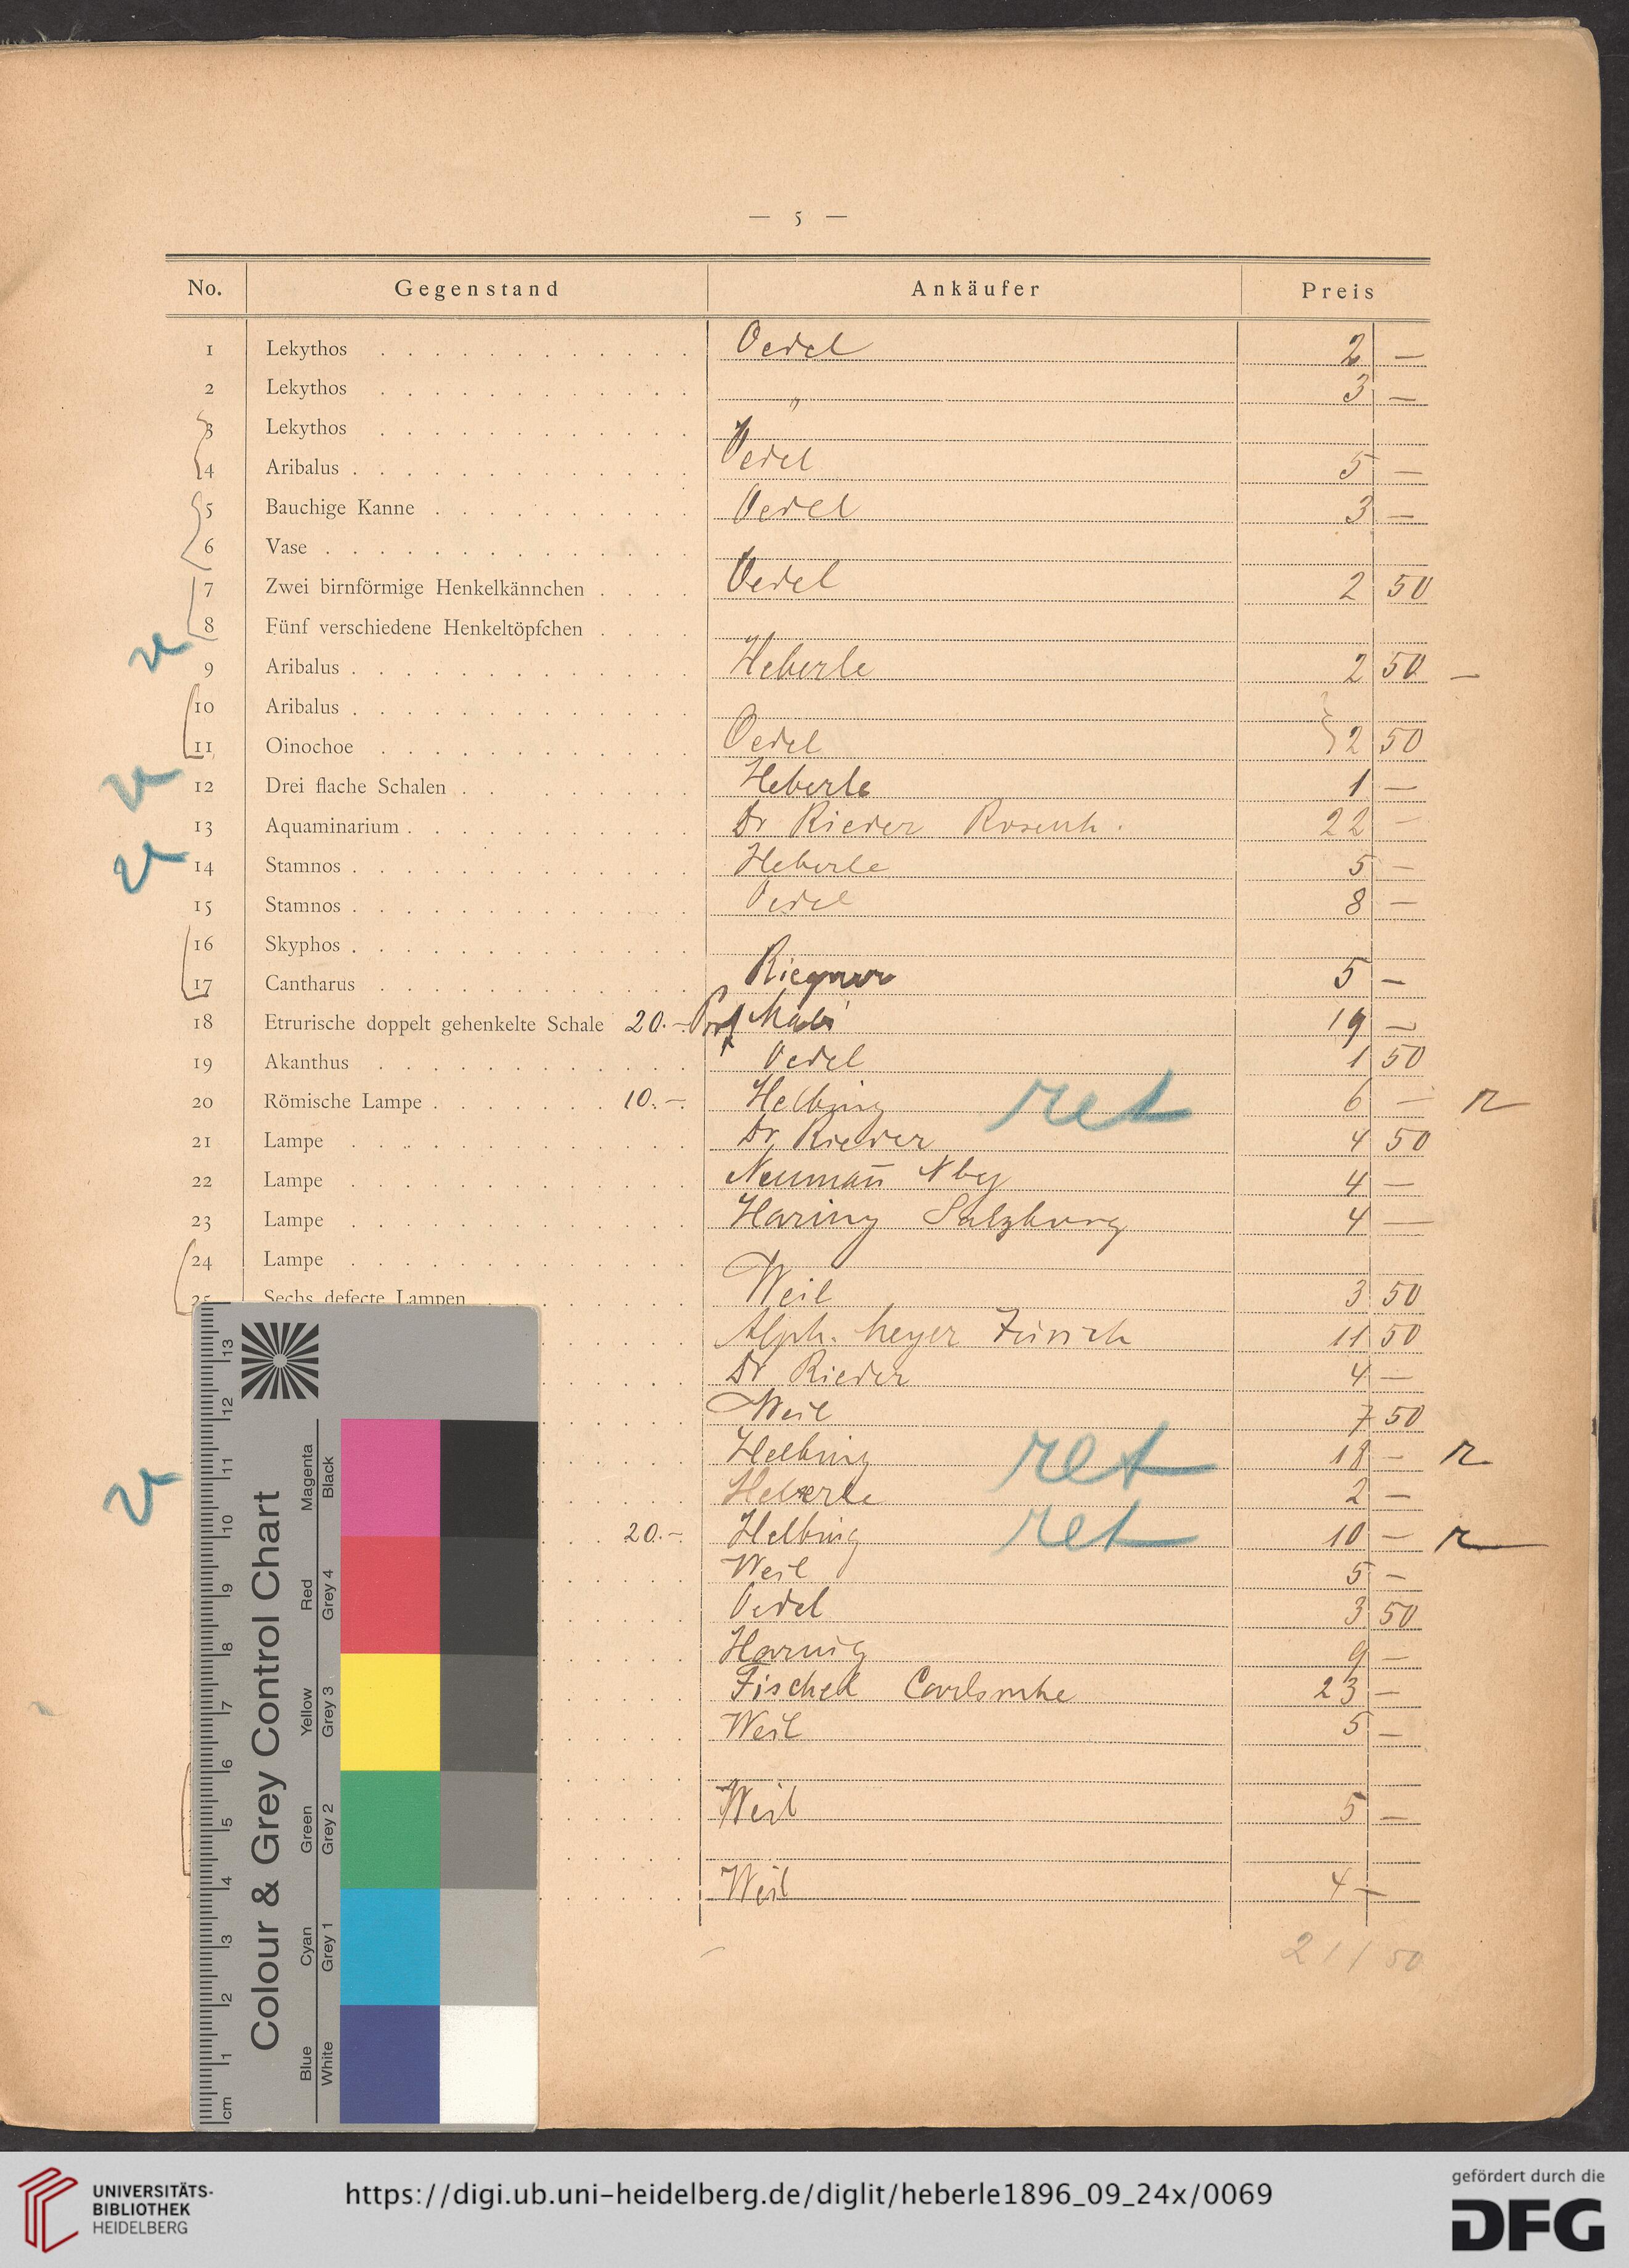 — 5 —
No. Gegenstand Ankäufer Preis
1 Lekythos Oedel 2 —
2 Lekythos " 3 —
3 Lekythos
4 Aribalus Oedel 5 —
5 Bauchige Kanne Oedel 3 —
6 Vase
7 Zwei birnförmige Henkelkännchen Oedel 2 50
8 Fünf verschiedene Henkeltöpfchen
9 Aribalus Heberle 2 50 —
10 Aribalus
11 Oinochoe Oedel 2 50
12 Drei flache Schalen Heberle 1 —
13 Aquaminarium Dr Rieder Rosenh. 22 —
14 Stamnos Heberle 5 —
15 Stamnos Oedel 8 —
16 Skyphos
17 Cantharus 5 —
18 Etrurische doppelt gehenkelte Schale 20.— Prof 19 —
19 Akanthus Oedel 1 50
20 Römische Lampe 10.— Helbing ret 6 — r
21 Lampe Dr Rieder 4 50
22 Lampe Neumañ Nbg 4 —
23 Lampe Haring Salzburg 4 —
24 Lampe
25 Sechs defecte Lampen Weil 3 50
Alph. Meyer Zürich 11 50
Dr Rieder 4 —
Weil 7 50
Helbing ret 18 — r
Heberle 2 —
20.— Helbing ret 10 — r
Weil 5 —
Oedel 3 50
Harnig 9 —
Fischel Carlsruhe 23 —
Weil 5 —
Weil 5 —
Weil 4 —
211 50
Colour & Grey Control Chart
Magenta Black
Red Grey 4
Yellow Grey 3
Green Grey 2
Cyan Grey 1
Blue White
13 12 11 10 9 8 7 6 5 4 3 2 1 cm
UNIVERSITÄTS-
BIBLIOTHEK
HEIDELBERG
https://digi.ub.uni-heidelberg.de/diglit/heberle1896_09_24x/0069
gefördert durch die
DFG